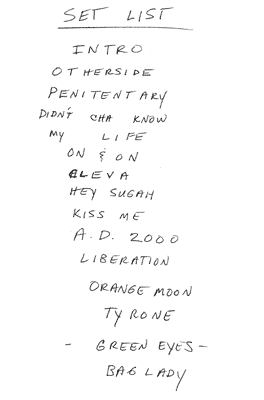 SET LIST
INTRO
OTHERSIDE
PENITENTARY
DIDN'T CHA KNOW
MY LIFE
ON & ON
CLEVA
HEY SUGAH
KISS ME
A.D. 2000
LIBERATION
ORANGE MOON
TYRONE
- GREEN EYES -
BAG LADY